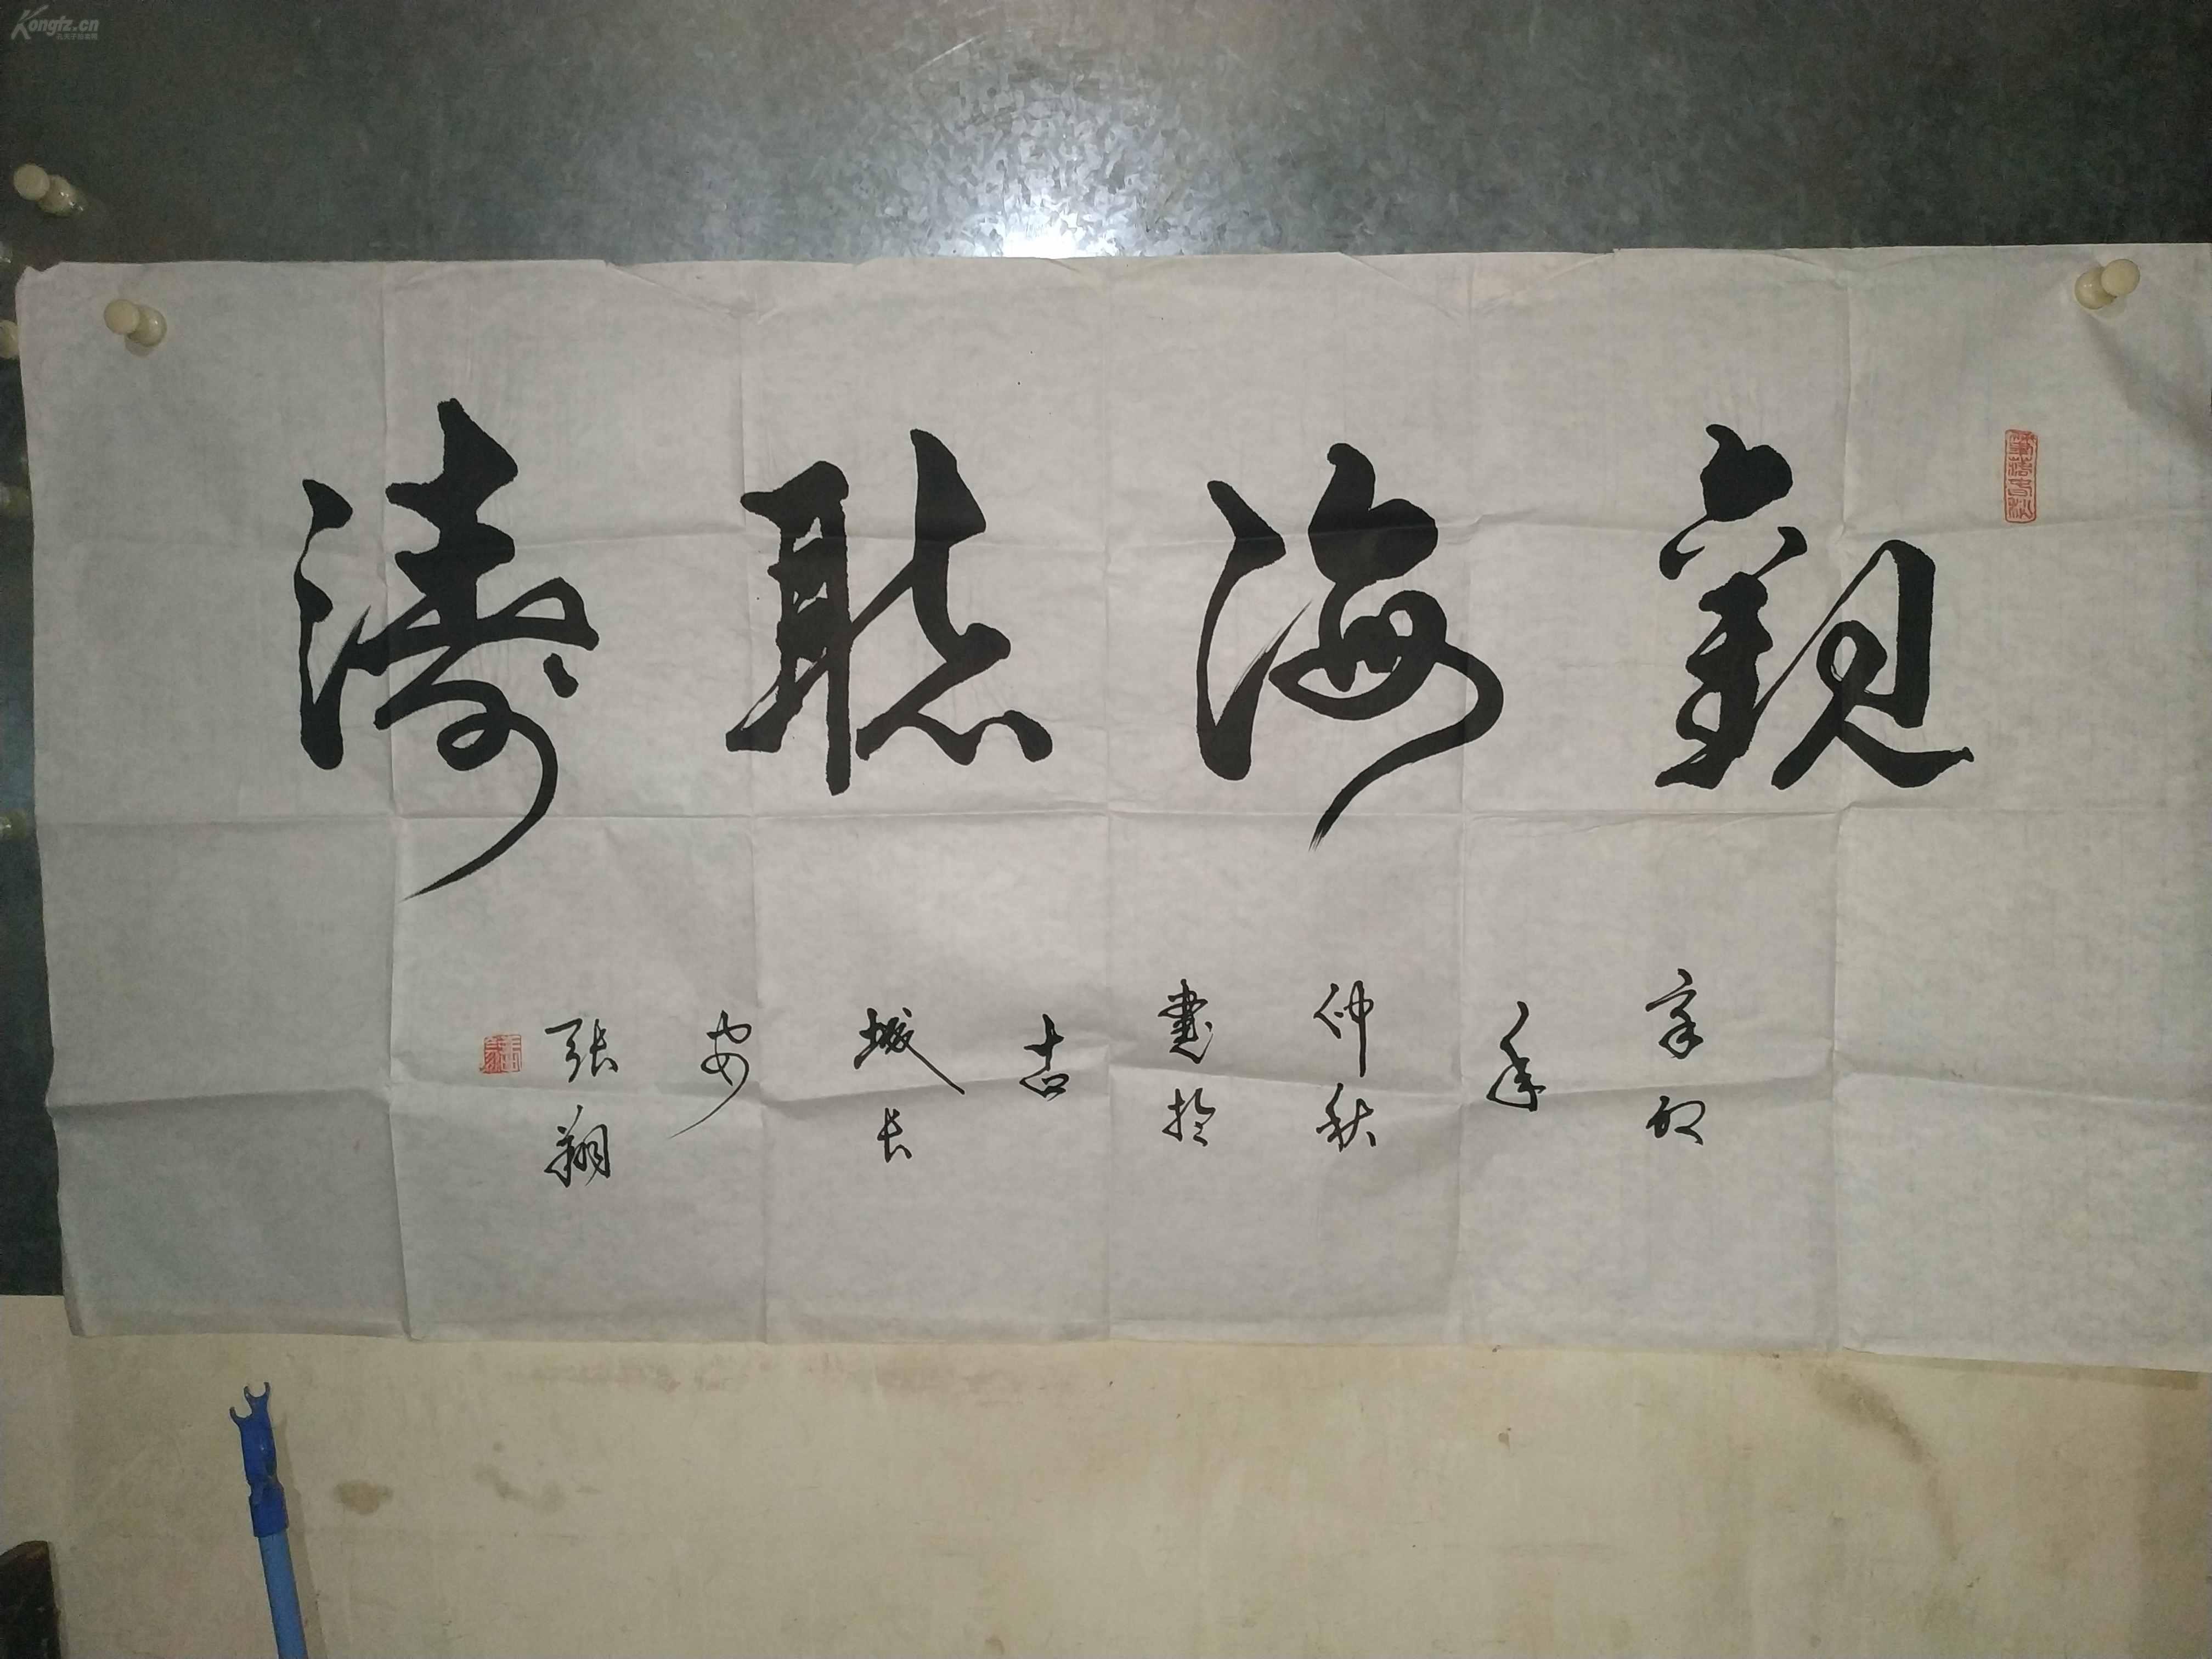 觀海聽濤
辛卯
年
仲秋
書於
古
城長
安
張翔
Kongfz.cn